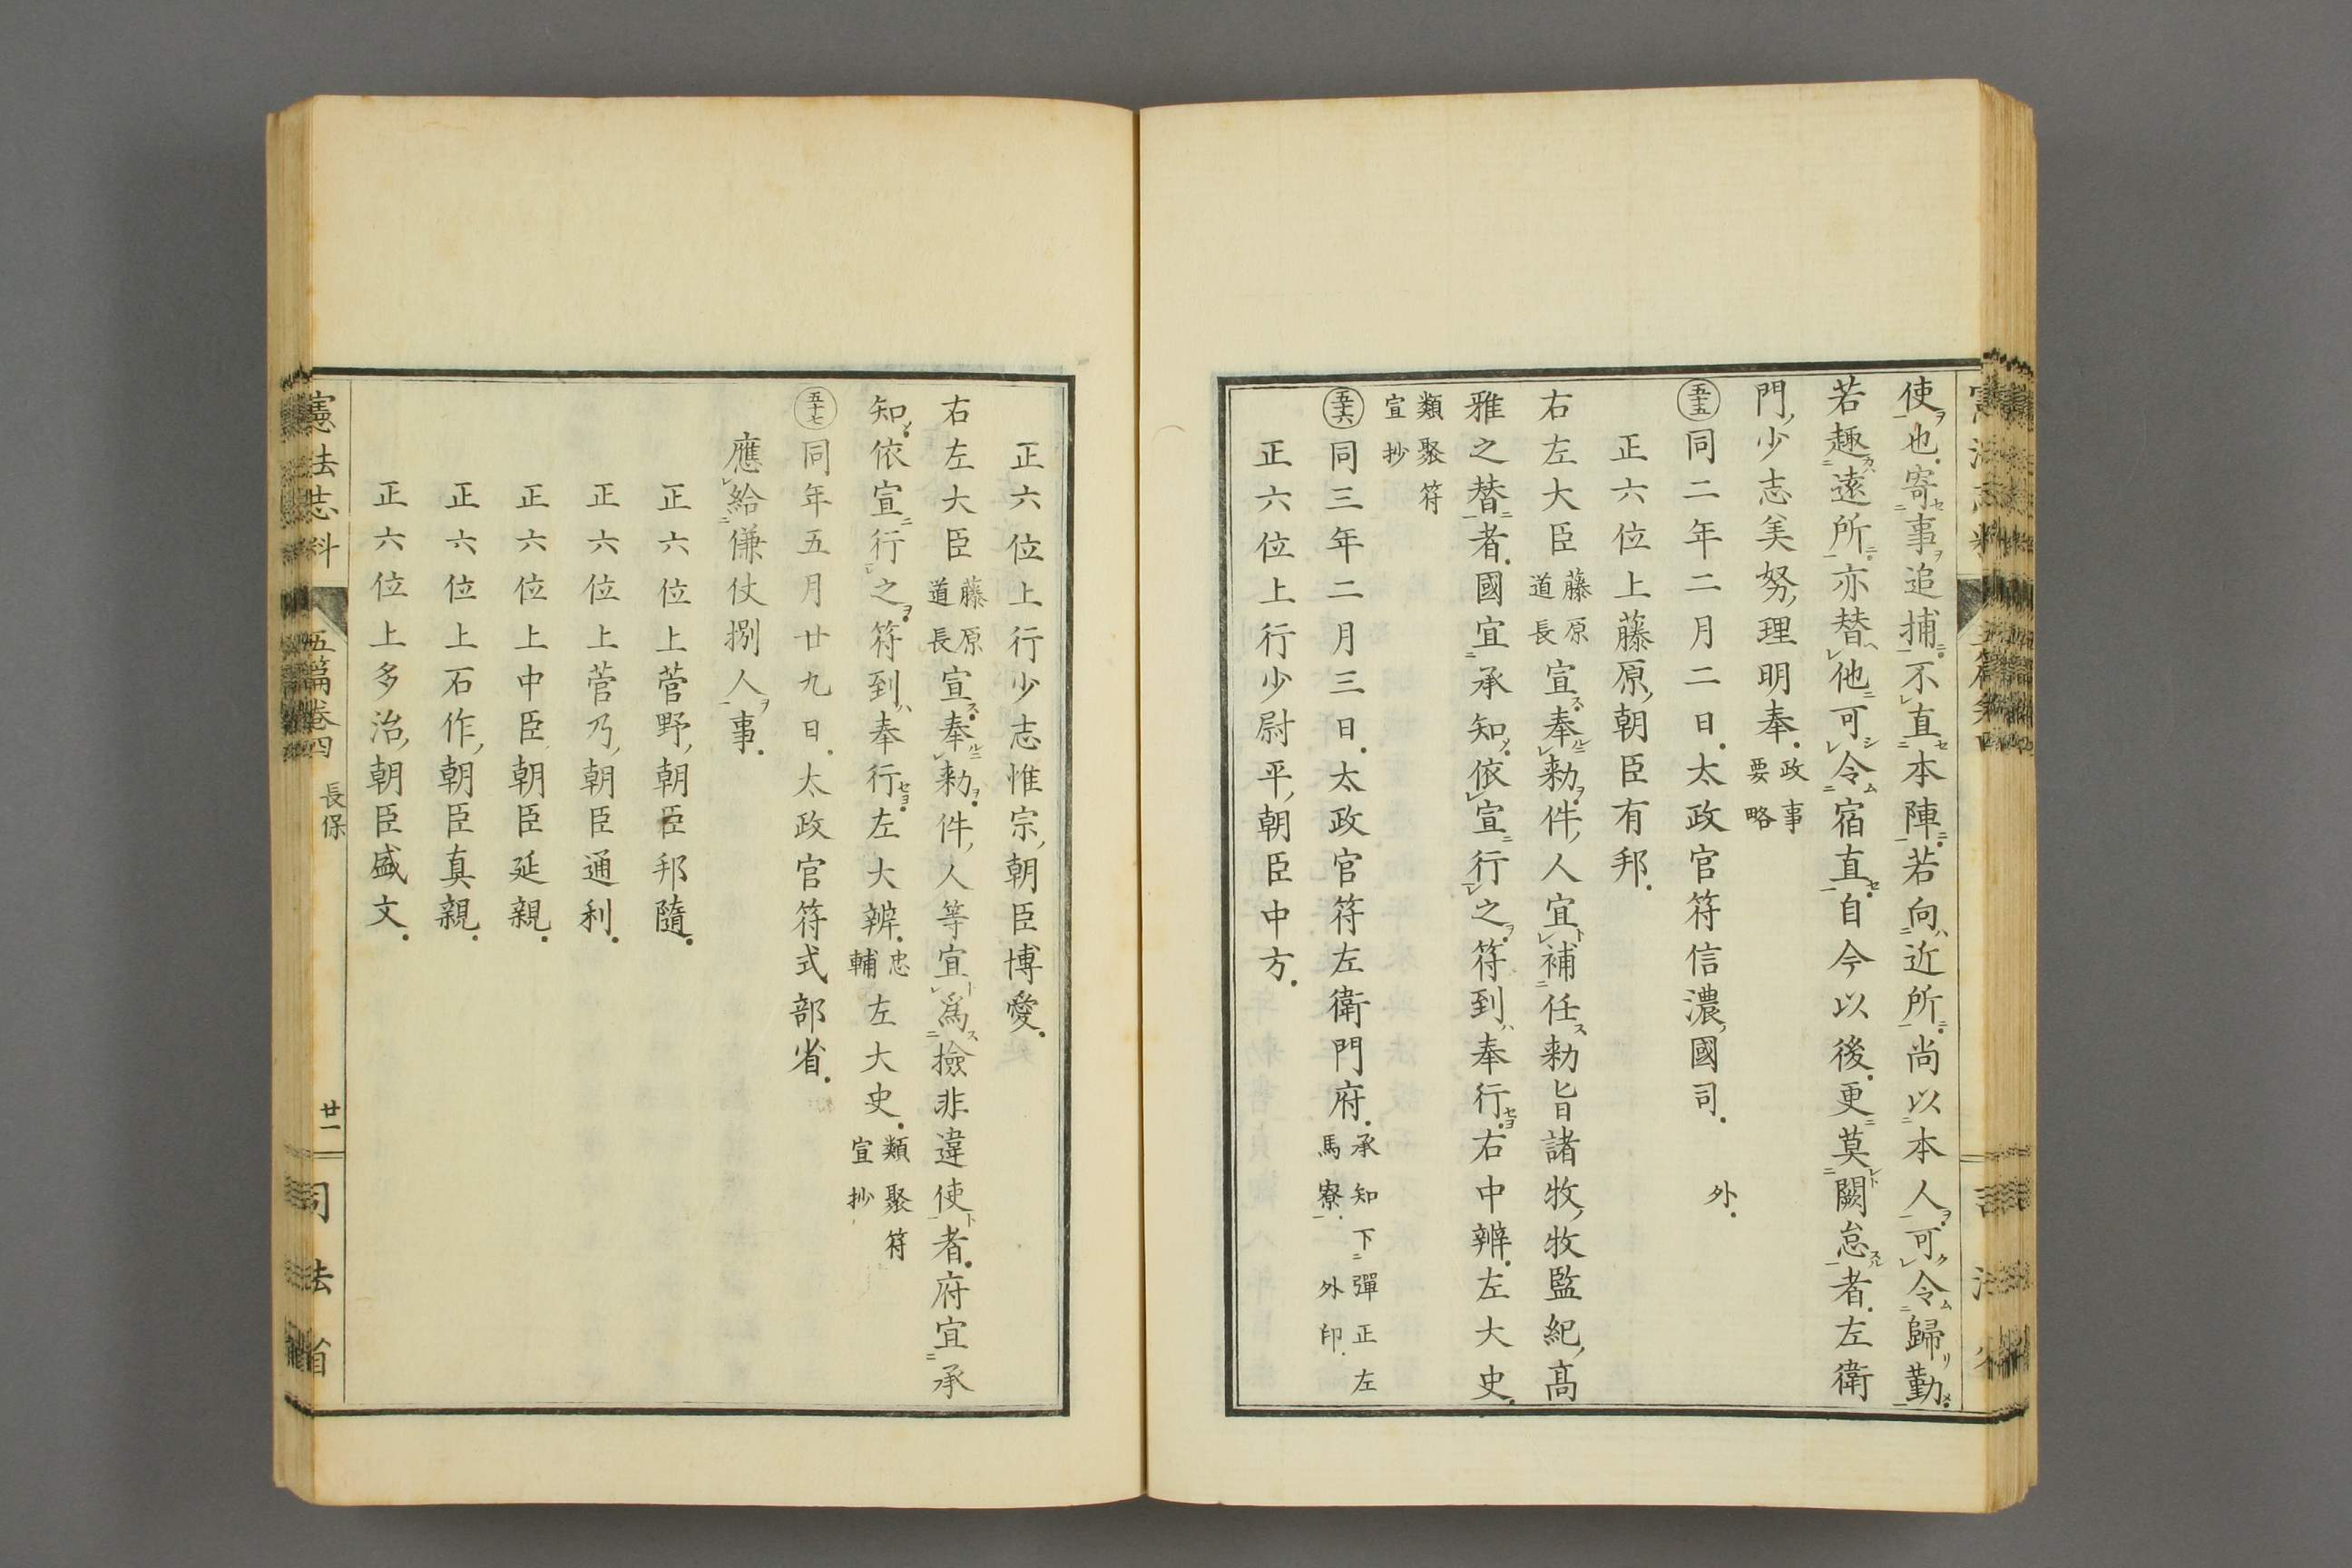 使也寄事追捕不直本陣若向近所尚以本人可令歸勤
若趣遠所亦替他可令宿直自今以後更莫闕怠者左衛
門少志美努理明奉政事要略
五十五同二年二月二日太政官符信濃國司 外
正六位上藤原朝臣有邦
右左大臣藤原道長宣奉勅件人宜補任勅旨諸牧牧監紀高
雅之替者國宜承知依宣行之符到奉行右中辨左大史
類聚符宣抄
五十六同三年二月三日太政官符左衛門府承知下彈正左馬寮外印
正六位上行少尉平朝臣中方
正六位上行少志惟宗朝臣博愛
右左大臣藤原道長宣奉勅件人等宜爲撿非違使者府宜承
知依宣行之符到奉行左大辨忠輔左大史類聚符宣抄
五十七同年五月廿九日太政官符式部省
應給傔仗捌人事
正六位上菅野朝臣邦隨
正六位上菅乃朝臣通利
正六位上中臣朝臣延親
正六位上石作朝臣真親
正六位上多治朝臣盛文
憲法志料 五篇卷四 長保 廿一 司法省